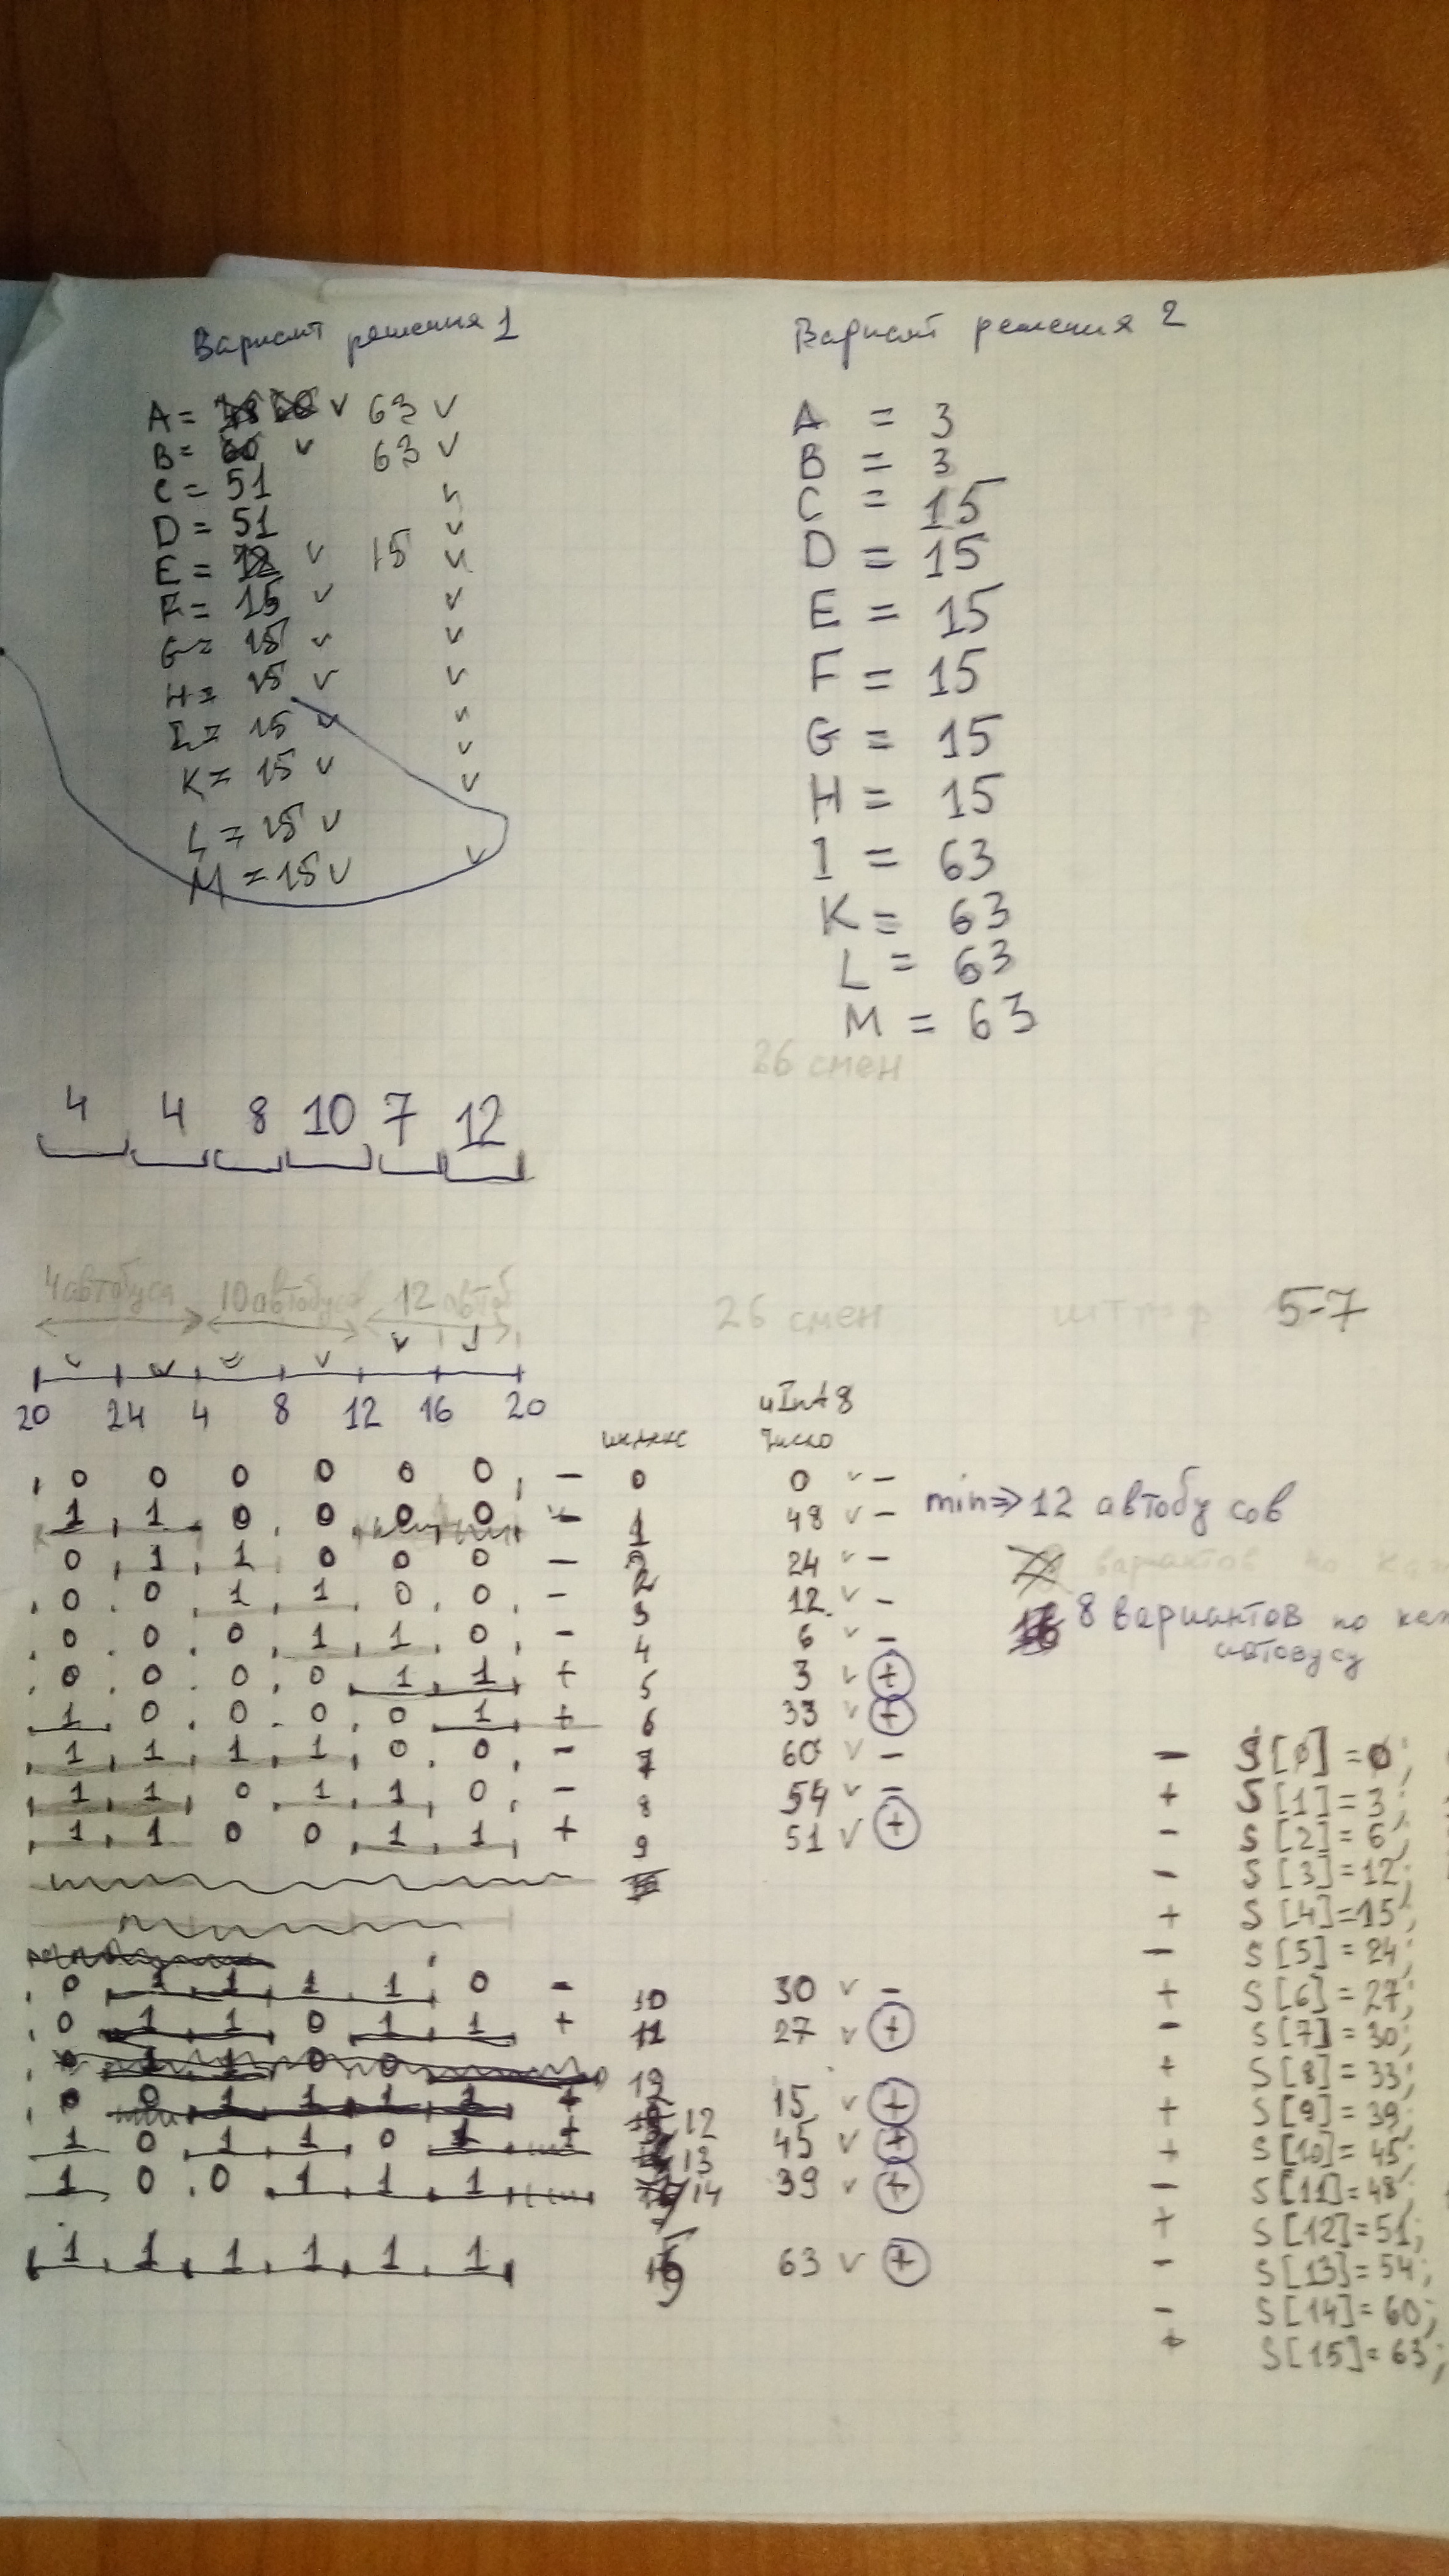 Вариант решения 1
A = v 63 v
B = 60 v 63 v
C = 51 v
D = 51 v
E = 12 v 15 v
F = 15 v v
G = 15 v v
H = 15 v v
I = 15 v v
K = 15 v v
L = 15 v v
M = 15 v v
Вариант решения 2
A = 3
B = 3
C = 15
D = 15
E = 15
F = 15
G = 15
H = 15
I = 63
K = 63
L = 63
M = 63
26 смен
4 4 8 10 7 12
4 автобуса 10 автобусов 12 автоб
26 смен
штраф 5-7
20 24 4 8 12 16 20
индекс
uInt8
Число
0 0 0 0 0 0 - 0 0 v -
1 1 0 0 0 0 - 1 48 v -
0 1 1 0 0 0 - 2 24 v -
0 0 1 1 0 0 - 3 12 v -
0 0 0 1 1 0 - 4 6 v -
0 0 0 0 1 1 + 5 3 v +
1 0 0 0 0 1 + 6 33 v +
1 1 1 1 0 0 - 7 60 v -
1 1 0 1 1 0 - 8 54 v -
1 1 0 0 1 1 + 9 51 v +
0 1 1 1 1 0 - 10 30 v -
0 1 1 0 1 1 + 11 27 v +
0 1 1 0 0
0 0 1 1 1 1 + 12 15 v +
1 0 1 1 0 1 + 13 45 v +
1 0 0 1 1 1 14 39 v +
1 1 1 1 1 1 63 v +
min => 12 автобусов
вариантов по
8 вариантов по
автобусу
- S[0] = 0;
+ S[1] = 3;
- S[2] = 6;
- S[3] = 12;
+ S[4] = 15;
- S[5] = 24;
+ S[6] = 27;
- S[7] = 30;
+ S[8] = 33;
+ S[9] = 39;
+ S[10] = 45;
- S[11] = 48;
+ S[12] = 51;
- S[13] = 54;
- S[14] = 60;
+ S[15] = 63;